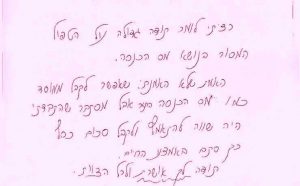 רציתי לומר תודה גדולה על הטיפול
המסור בנושא מס הכנסה.
האמת שלא האמנתי שאפשר לקבל ממוסד
כמו מס הכנסה כסף אבל מסתבר שהתבדתי
היה שווה להתאמץ ולקבל סכום כסף
כך סתם באמצע החיים.
תודה לך אושרת ולכל הצוות.